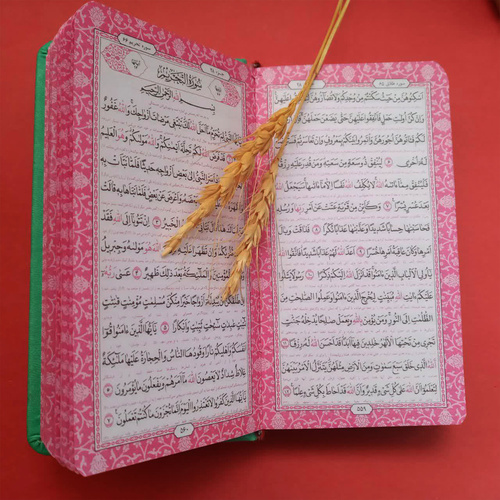 أَسْكِنُوهُنَّ مِنْ حَيْثُ سَكَنْتُمْ مِنْ وُجْدِكُمْ وَلَا تُضَارُّوهُنَّ عَلَيْهِنَّ
وَإِنْ كُنَّ أُولَاتِ حَمْلٍ فَأَنْفِقُوا عَلَيْهِنَّ حَتَّىٰ يَضَعْنَ حَمْلَهُنَّ
لَكُمْ فَآتُوهُنَّ أُجُورَهُنَّ وَأْتَمِرُوا بَيْنَكُمْ بِمَعْرُوفٍ وَإِنْ تَعَاسَرْتُمْ
لَهُ أُخْرَىٰ ٦ لِيُنْفِقْ ذُو سَعَةٍ مِنْ سَعَتِهِ وَمَنْ قُدِرَ عَلَيْهِ
فَلْيُنْفِقْ مِمَّا آتَاهُ اللَّهُ لَا يُكَلِّفُ اللَّهُ نَفْسًا إِلَّا مَا آتَاهَا سَيَجْعَلُ اللَّهُ
بَعْدَ عُسْرٍ يُسْرًا ٧ وَكَأَيِّنْ مِنْ قَرْيَةٍ عَتَتْ عَنْ أَمْرِ رَبِّهَا وَرُسُلِهِ
فَحَاسَبْنَاهَا حِسَابًا شَدِيدًا وَعَذَّبْنَاهَا عَذَابًا نُكْرًا ٨ فَذَاقَتْ وَبَالَ
أَمْرِهَا وَكَانَ عَاقِبَةُ أَمْرِهَا خُسْرًا ٩ أَعَدَّ اللَّهُ لَهُمْ عَذَابًا شَدِيدًا فَاتَّقُوا
اللَّهَ يَا أُولِي الْأَلْبَابِ الَّذِينَ آمَنُوا قَدْ أَنْزَلَ اللَّهُ إِلَيْكُمْ ذِكْرًا ١٠ رَسُولًا يَتْلُو
عَلَيْكُمْ آيَاتِ اللَّهِ مُبَيِّنَاتٍ لِيُخْرِجَ الَّذِينَ آمَنُوا وَعَمِلُوا الصَّالِحَاتِ مِنَ
الظُّلُمَاتِ إِلَى النُّورِ وَمَنْ يُؤْمِنْ بِاللَّهِ وَيَعْمَلْ صَالِحًا يُدْخِلْهُ جَنَّاتٍ
تَجْرِي مِنْ تَحْتِهَا الْأَنْهَارُ خَالِدِينَ فِيهَا أَبَدًا قَدْ أَحْسَنَ اللَّهُ لَهُ رِزْقًا ١١
اللَّهُ الَّذِي خَلَقَ سَبْعَ سَمَاوَاتٍ وَمِنَ الْأَرْضِ مِثْلَهُنَّ يَتَنَزَّلُ الْأَمْرُ بَيْنَهُنَّ
لِتَعْلَمُوا أَنَّ اللَّهَ عَلَىٰ كُلِّ شَيْءٍ قَدِيرٌ وَأَنَّ اللَّهَ قَدْ أَحَاطَ بِكُلِّ شَيْءٍ عِلْمًا ١٢
٥٥٩
سورة تحريم ٦٦
سُورَةُ التَّحْرِيمِ
بِسْمِ اللَّهِ الرَّحْمَٰنِ الرَّحِيمِ
يَا أَيُّهَا النَّبِيُّ لِمَ تُحَرِّمُ مَا أَحَلَّ اللَّهُ لَكَ تَبْتَغِي مَرْضَاتَ أَزْوَاجِكَ وَاللَّهُ غَفُورٌ
قَدْ فَرَضَ اللَّهُ لَكُمْ تَحِلَّةَ أَيْمَانِكُمْ وَاللَّهُ مَوْلَاكُمْ وَهُوَ الْعَلِيمُ
النَّبِيُّ إِلَىٰ بَعْضِ أَزْوَاجِهِ حَدِيثًا فَلَمَّا نَبَّأَتْ بِهِ
بَعْضَهُ وَأَعْرَضَ عَنْ بَعْضٍ فَلَمَّا نَبَّأَهَا بِهِ قَالَتْ
الْخَبِيرُ ٣ إِنْ تَتُوبَا إِلَى اللَّهِ فَقَدْ
وَإِنْ تَظَاهَرَا اللَّهَ هُوَ مَوْلَاهُ وَجِبْرِيلُ
وَالْمَلَائِكَةُ بَعْدَ ذَٰلِكَ ظَهِيرٌ ٤ عَسَىٰ رَبُّهُ
أَزْوَاجًا خَيْرًا مِنْكُنَّ مُسْلِمَاتٍ مُؤْمِنَاتٍ قَانِتَاتٍ
تَائِبَاتٍ عَابِدَاتٍ سَائِحَاتٍ ثَيِّبَاتٍ وَأَبْكَارًا ٥ يَا أَيُّهَا الَّذِينَ آمَنُوا قُوا
أَنْفُسَكُمْ وَأَهْلِيكُمْ نَارًا وَقُودُهَا النَّاسُ وَالْحِجَارَةُ عَلَيْهَا مَلَائِكَةٌ
غِلَاظٌ شِدَادٌ لَا يَعْصُونَ اللَّهَ مَا أَمَرَهُمْ وَيَفْعَلُونَ مَا يُؤْمَرُونَ ٦
يَا أَيُّهَا الَّذِينَ كَفَرُوا لَا تَعْتَذِرُوا الْيَوْمَ إِنَّمَا تُجْزَوْنَ مَا كُنْتُمْ تَعْمَلُونَ ٧
٥٦٠